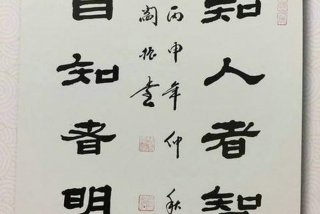 知人者智
自知者明
丙申年仲秋